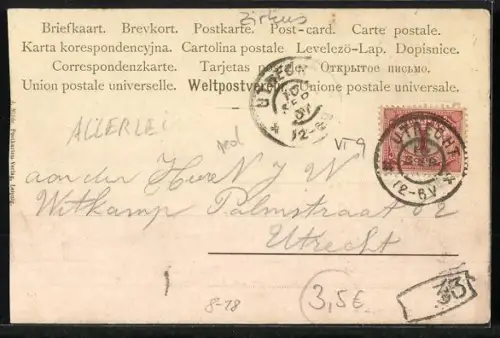 Zirkus
Briefkaart. Brevkort. Postkarte. Post-card. Carte postale.
Karta korespondencyjna. Cartolina postale Levelezö-Lap. Dopisnice.
Correspondenzkarte. Tarjetas postales. Открытое письмо.
Union postale universelle. Weltpostverein. Unione postale universale.
UTRECHT
12-
ALLERLEI
UTRECHT
12-6V
aan den Heer N J W
Witkamp Palmstraat 62
Utrecht
8-28
3,5€
33